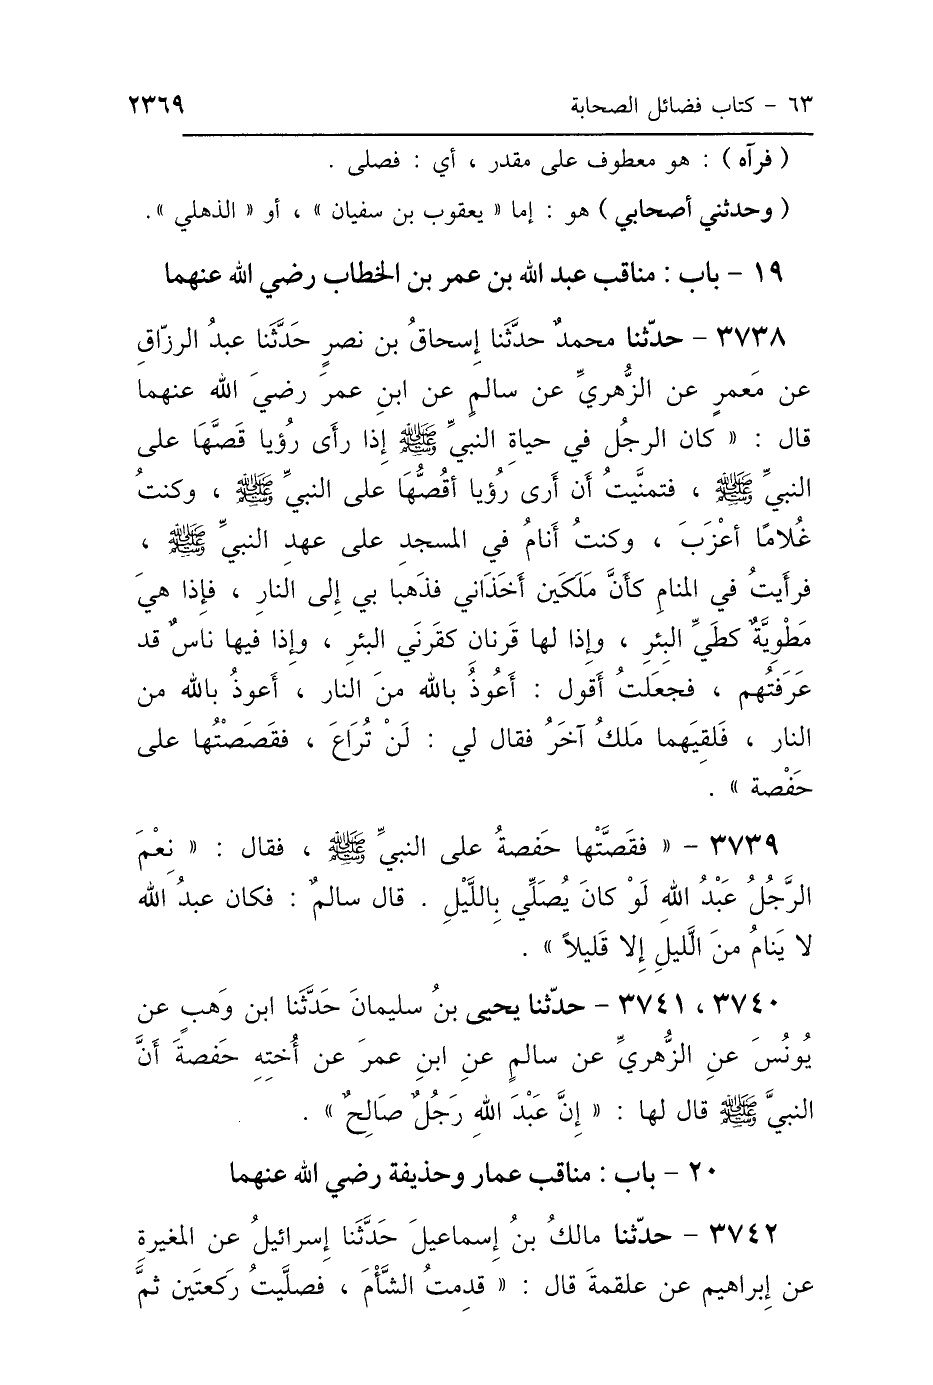 ٦٣ - كتاب فضائل الصحابة ٢٣٦٩
( فرآه ) : هو معطوف على مقدر ، أي : فصلى .
( وحدثني أصحابي ) هو : إما « يعقوب بن سفيان » ، أو « الذهلي ».
١٩ - باب : مناقب عبد الله بن عمر بن الخطاب رضي الله عنهما
٣٧٣٨ - حدّثنا محمدٌ حدَّثَنا إسحاقُ بن نصرٍ حَدَّثَنا عبدُ الرزّاقِ
عن مَعمرٍ عن الزُّهريِّ عن سالمٍ عن ابنِ عمرَ رضيَ الله عنهما
قال : « كان الرجُل في حياةِ النبيِّ ﷺ إذا رأَى رُؤيا قَصَّهَا على
النبيِّ ﷺ ، فتمنَّيتُ أن أرى رُؤيا أقُصُّهَا على النبيِّ ﷺ ، وكنتُ
غُلامًا أعْزَبَ ، وكنتُ أنامُ في المسجدِ على عهدِ النبيِّ ﷺ ،
فرأَيتُ في المنامِ كأنَّ مَلَكَين أخَذَاني فذَهبا بي إلى النارِ ، فإذا هيَ
مَطْوِيَّةٌ كطَيِّ البِئرِ ، وإذا لها قَرنان كقَرنَي البئرِ ، وإذا فيها ناسٌ قد
عَرَفتُهم ، فجعَلتُ أقول : أَعُوذُ بالله منَ النار ، أَعوذُ بالله من
النار ، فَلقِيَهما مَلكُ آخَرُ فقال لي : لَنْ تُرَاعَ ، فقَصَصْتُها على
حَفْصة » .
٣٧٣٩ - « فقَصَّتْها حَفصةُ على النبيِّ ﷺ ، فقال : « نِعْمَ
الرَّجُلُ عَبْدُ اللهِ لَوْ كانَ يُصَلِّي بِاللَّيْلِ . قال سالمٌ : فكان عبدُ الله
لا يَنامُ منَ الَّليلِ إلا قَليلاً » .
٣٧٤٠ ، ٣٧٤١ - حدّثنا يحيى بنُ سليمانَ حَدَّثَنا ابن وَهبٍ عن
يُونُسَ عنِ الزُّهريِّ عن سالمٍ عنِ ابنِ عمرَ عن أُختِهِ حَفصةَ أنَّ
النبيَّ ﷺ قال لها : « إنَّ عَبْدَ اللهِ رَجُلٌ صَالِحٌ » .
٢٠ - باب : مناقب عمار وحذيفة رضي الله عنهما
٣٧٤٢ - حدّثنا مالكُ بنُ إسماعيلَ حَدَّثَنا إسرائيلُ عن المغيرةِ
عن إبراهيم عن علقمةَ قال : « قدِمتُ الشَّأْمَ ، فصلَّيتُ رَكعتَين ثمَّ